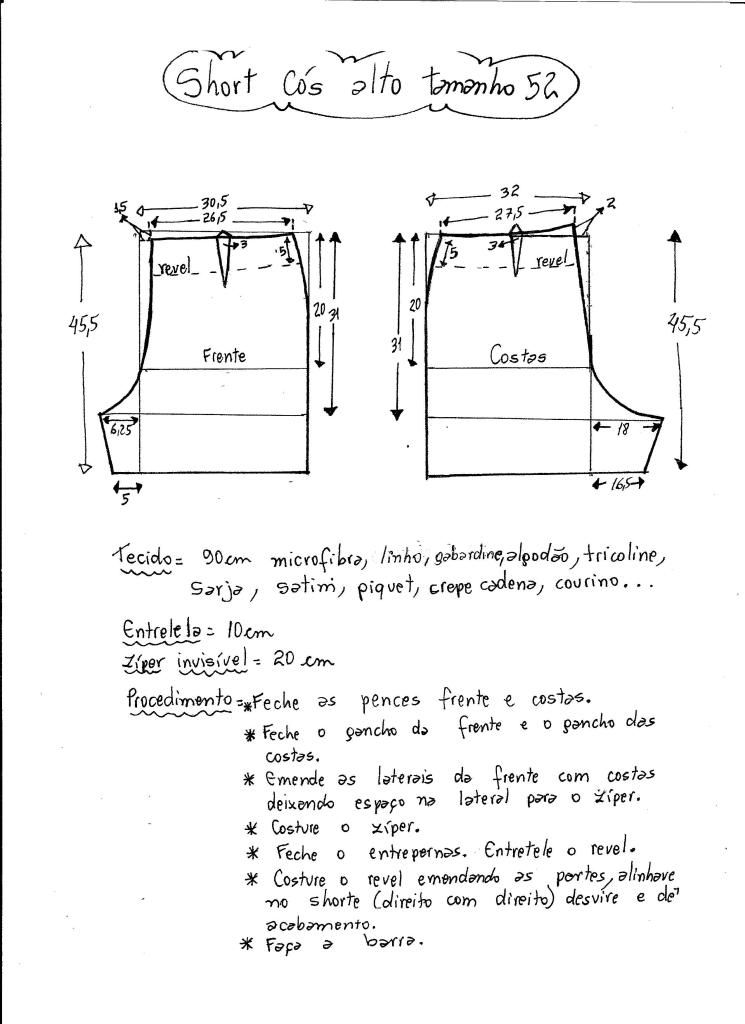 Short Cós alto tamanho 52
30,5
26,5
1,5
3
5
revel
20
31
45,5
Frente
6,25
5
32
27,5
2
3
5
revel
20
31
45,5
Costas
18
16,5
Tecido = 90cm microfibra, linho, gabardine, algodão, tricoline,
sarja, satim, piquet, crepe cadena, courino...
Entretela = 10cm
Zíper invisível = 20 cm
Procedimento = *Feche as pences frente e costas.
* Feche o gancho da frente e o gancho das
costas.
* Emende as laterais da frente com costas
deixando espaço na lateral para o zíper.
* Costure o zíper.
* Feche o entrepernas. Entretele o revel.
* Costure o revel emendando as partes, alinhave
no shorte (direito com direito) desvire e dê
acabamento.
* Faça a barra.